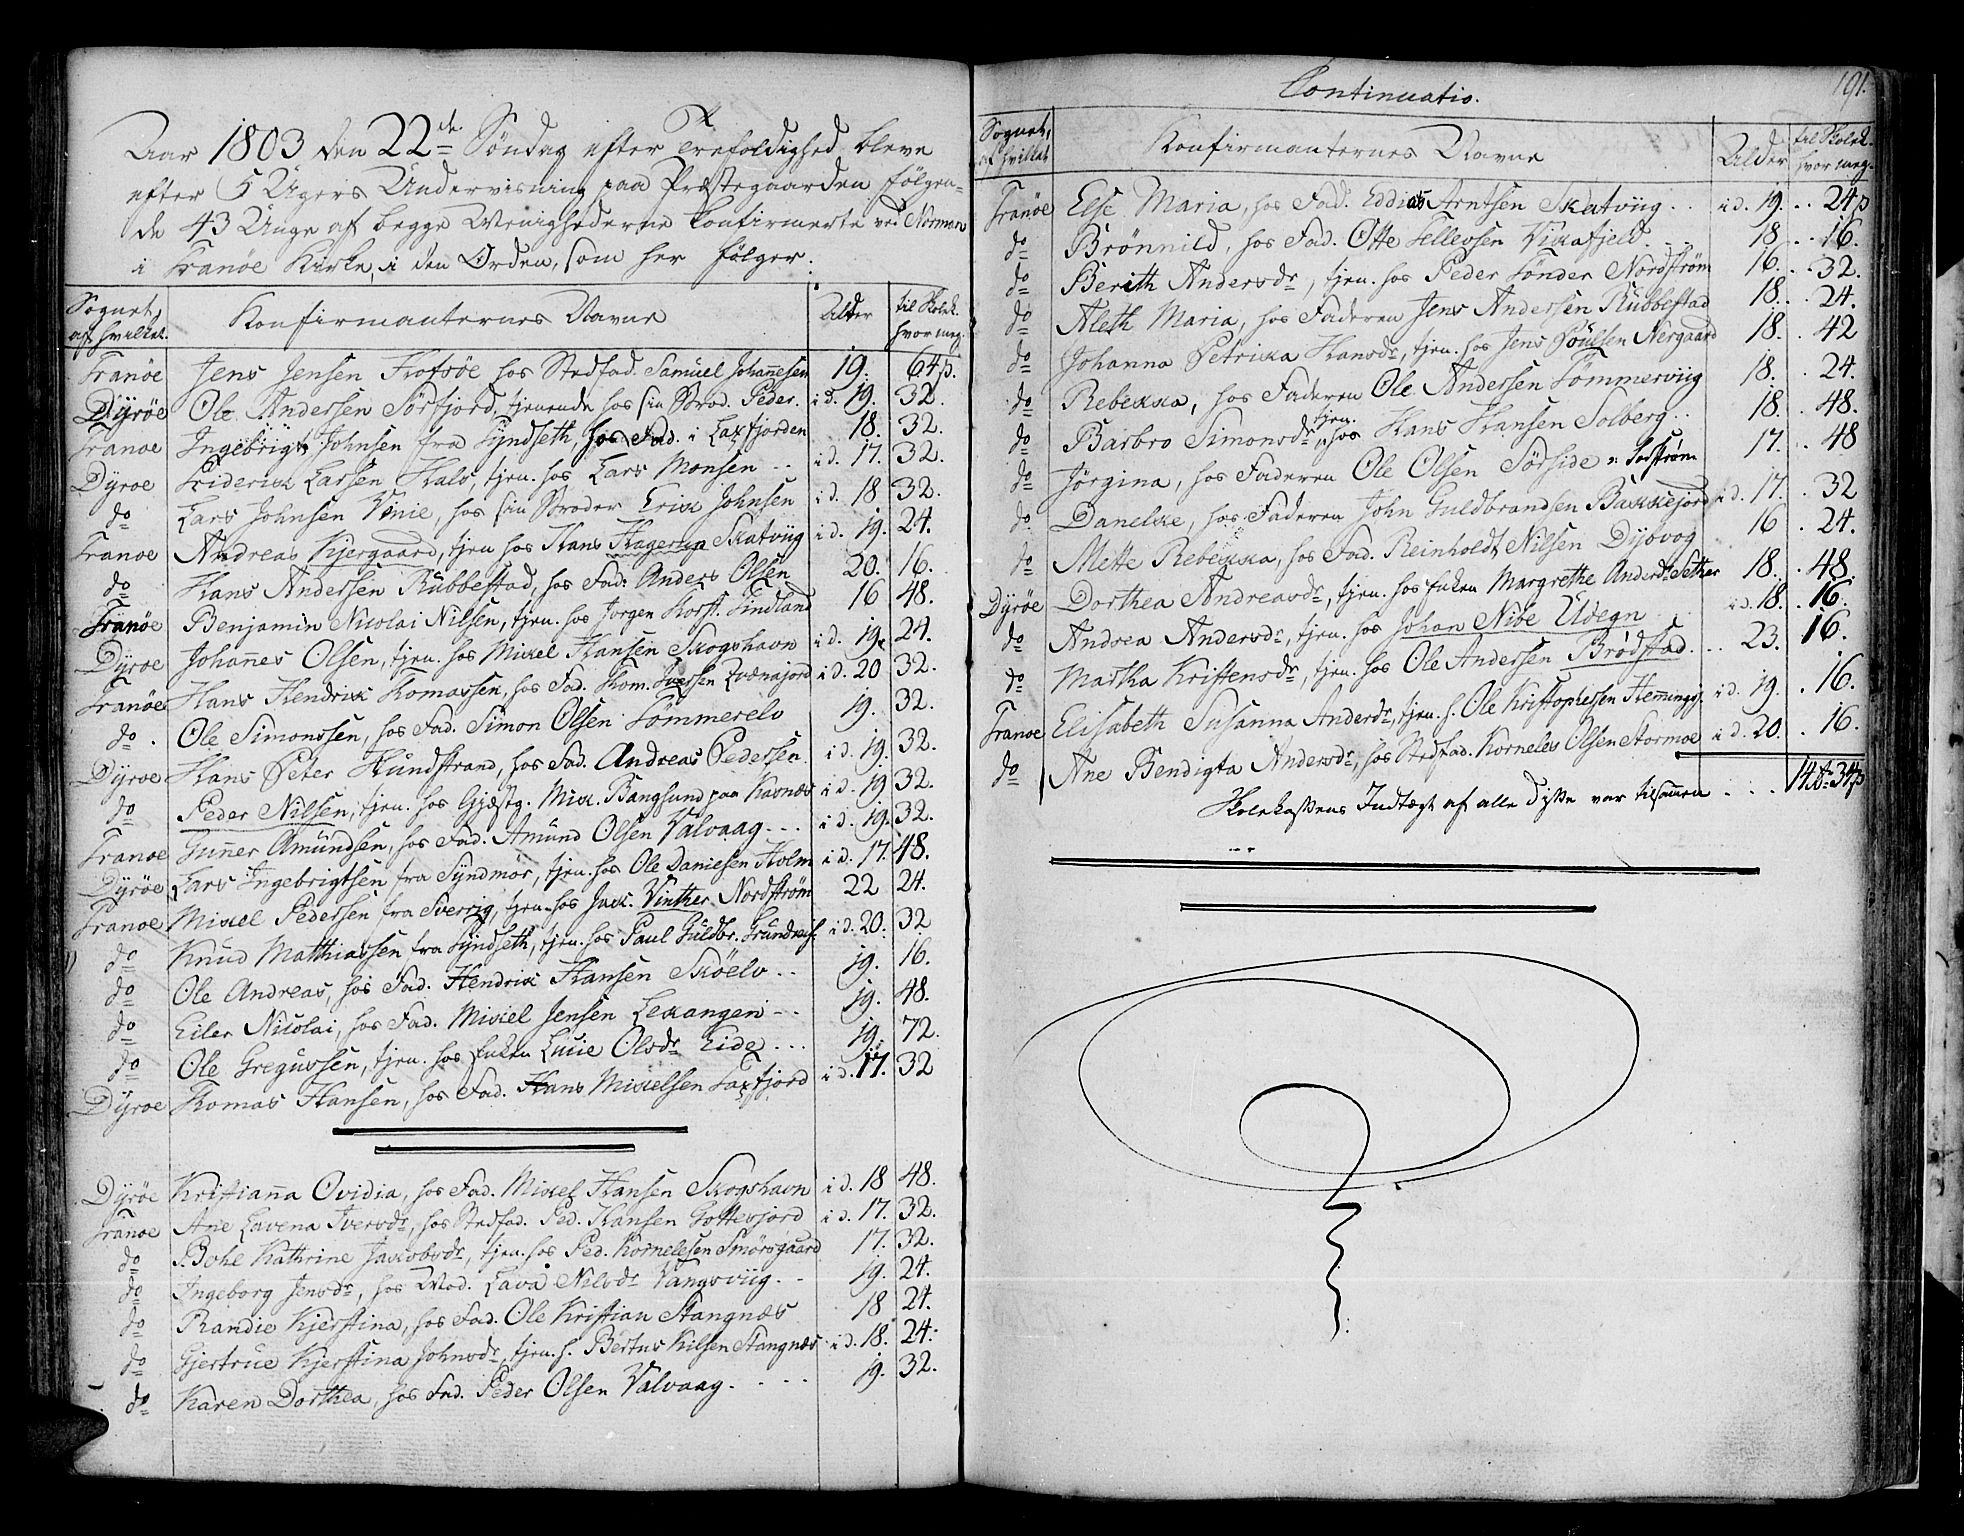 Aar 1803 den 22de Søndag efter Trefoldighed bleve
efter 5 Ugers Undervisning paa Præstegaarden følgen-
de 43 Unge af begge Menighederne konfirmerte ved Norman
i Tranøe Kirke, i den Orden, som her følger.
Sognet, af hvilket. Konfirmanternes Navne Alder til Skolek. hvor meg.
Tranöe Jens Jensen Kofsöe hos Stedfad. Samuel Johannesen 19. 64 s.
Dÿröe Ole Andersen Sörfjord, tjenende hos sin Brod. Peder. i d. 19. 32.
Tranoe Ingebrigt Johnsen fra Syndseth, hos Fad. i Laxfjorden 18. 32.
Dÿroe Friderik Larsen Hals, tjen. hos Lars Monsen .. i d. 17. 32.
do Lars Johnsen Vinie, hos sin Broder Erik Johnsen i d. 18 32.
Tranoe Andreas Kjergaard, tjen hos Hans Hagerup Skatviig i d. 19. 24.
do Hans Andersen Rubbestad, hos Fad. Anders Olsen 20. 16.
Tranöe Benjamin Nicolai Nilsen, tjen. hos Jorgen Korst. Findland 16 48.
Dÿroe Johanes Olsen, tjen. hos Mikel Hansen Skogshavn i d. 19. 24.
Tranöe Hans Hendrik Tomassen, hos Fad. Tom. Iversen Kvænajord i d. 20 32.
do. Ole Simonssen, hos Fad. Simon Olsen Sömmerelv 19. 32.
Dÿroe Hans Peter Hundstrand, hos Fad. Andreas Pedersen i d. 19. 32.
do Peder Nilsen, tjen. hos Gjæstg. Mik. Bangsund paa Havnæs i d. 19 32.
Tranoe Gunner Amundsen, hos Fad. Amund Olsen Valvaag... i d. 19. 32.
Dÿröe Lars Ingebrigtsen fra Syndmör, tjen. hos Ole Danielsen Holm i d. 17. 48.
Tranoe Mikkel Pedersen fra Sverrig, tjen. hos Jak. Vinther Nordström 22 24.
do Knud Matthiassen fra Syndseth, tjen. hos Paul Guldbr. i d. 20. 32
do Ole Andreas, hos Fad. Hendrik Hansen Sköelv .. 19. 16.
do Eiler Nicolai, hos Fad. Mikkel Jensen Lexangen .. 19. 48.
do Ole Gregussen, tjen. hos Enken Lucie Olsdr Eide ... 19. 72.
Dÿroe Tomas Hansen, hos Fad. Hans Mikkelsen Laxfjord i d. 17. 32
Dÿröe Kristianna Ovidia, hos Fad. Mikkel Hansen Skogshavn i d. 18 48.
Tranoe Ane Lavena Iversdr, hos Stedfad. Ped. Hansen Gottesjord i d. 17. 32.
do Bohl Kathrine Jakobsdr, tjen. hos Ped. Kornelesen Smörsgaard 17. 32.
do Ingeborg Jensdr, hos Mod. Lava Nilsdr Vangsviig. . 19. 24.
do Randie Kjerstina, hos Fad. Ole Kristian Stangnæs 18 24.
do Gjertrue Kjerstina Johnsdr, tjen. h. Bertus Nilsen Stangnæs i d. 18. 24.
do Karen Dorthea, hos Fad. Peder Olsen Valvaag. ... 19. 32.
191.
Continuatio.
Sognet, af hvilket Konfirmanternes Navne Alder til Skolek. hvor meg.
Tranöe Else Maria, hos Fad. Eddias Arntsen Skatviig. i d. 19. .. 24 s
do Brönnild, hos Fad. Otte Tellevsen Vikafjeld. 18. .. 16.
do Berith Andersdr, tjen. hos Peder Tönder Nordström 16. .. 32.
do Aleth Maria, hos Faderen Jens Andersen Rubbestad 18. .. 24.
do Johanna Petrikka Hansdr, tjen. hos Jens Poulsen Nergaard 18. . 42
do Rebekka, hos Faderen Ole Andersen Sömmerviig 18. . 24.
do Barbro Simonsdr, tjen. hos Hans Hansen Solberg .. 18. . 48.
do Jörgina, hos Faderen Ole Olsen Sörside 17. . 48
do Danelke, hos Faderen John Guldbrandsen Bakkejord i d. 17. . 32
do Mette Rebekka, hos Fad. Reinholdt Nilsen Dÿbvog 16 . 24.
Dÿröe Dorthea Andreasdr, tjen. hos Enken Margrethe Andersdr Sether 18. . 48
do Andrea Andersdr, tjen. hos Johan Nibe Udegn i d. 18. . 16.
do Martha Kristensdr, tjen. hos Ole Andersen Brødstad. .. 23. 16.
Tranoe Elisabeth Susanna Andersdr, tjen. h. Ole Kristophersen Hemmingsj. i d. 19. . 16.
do Ane Bendigta Andersdr, hos Stedfad. Korneles Olsen Stormoe i d. 20. . 16.
Skolekassens Indtægt af alle disse var tilsamen ... 14 34 s